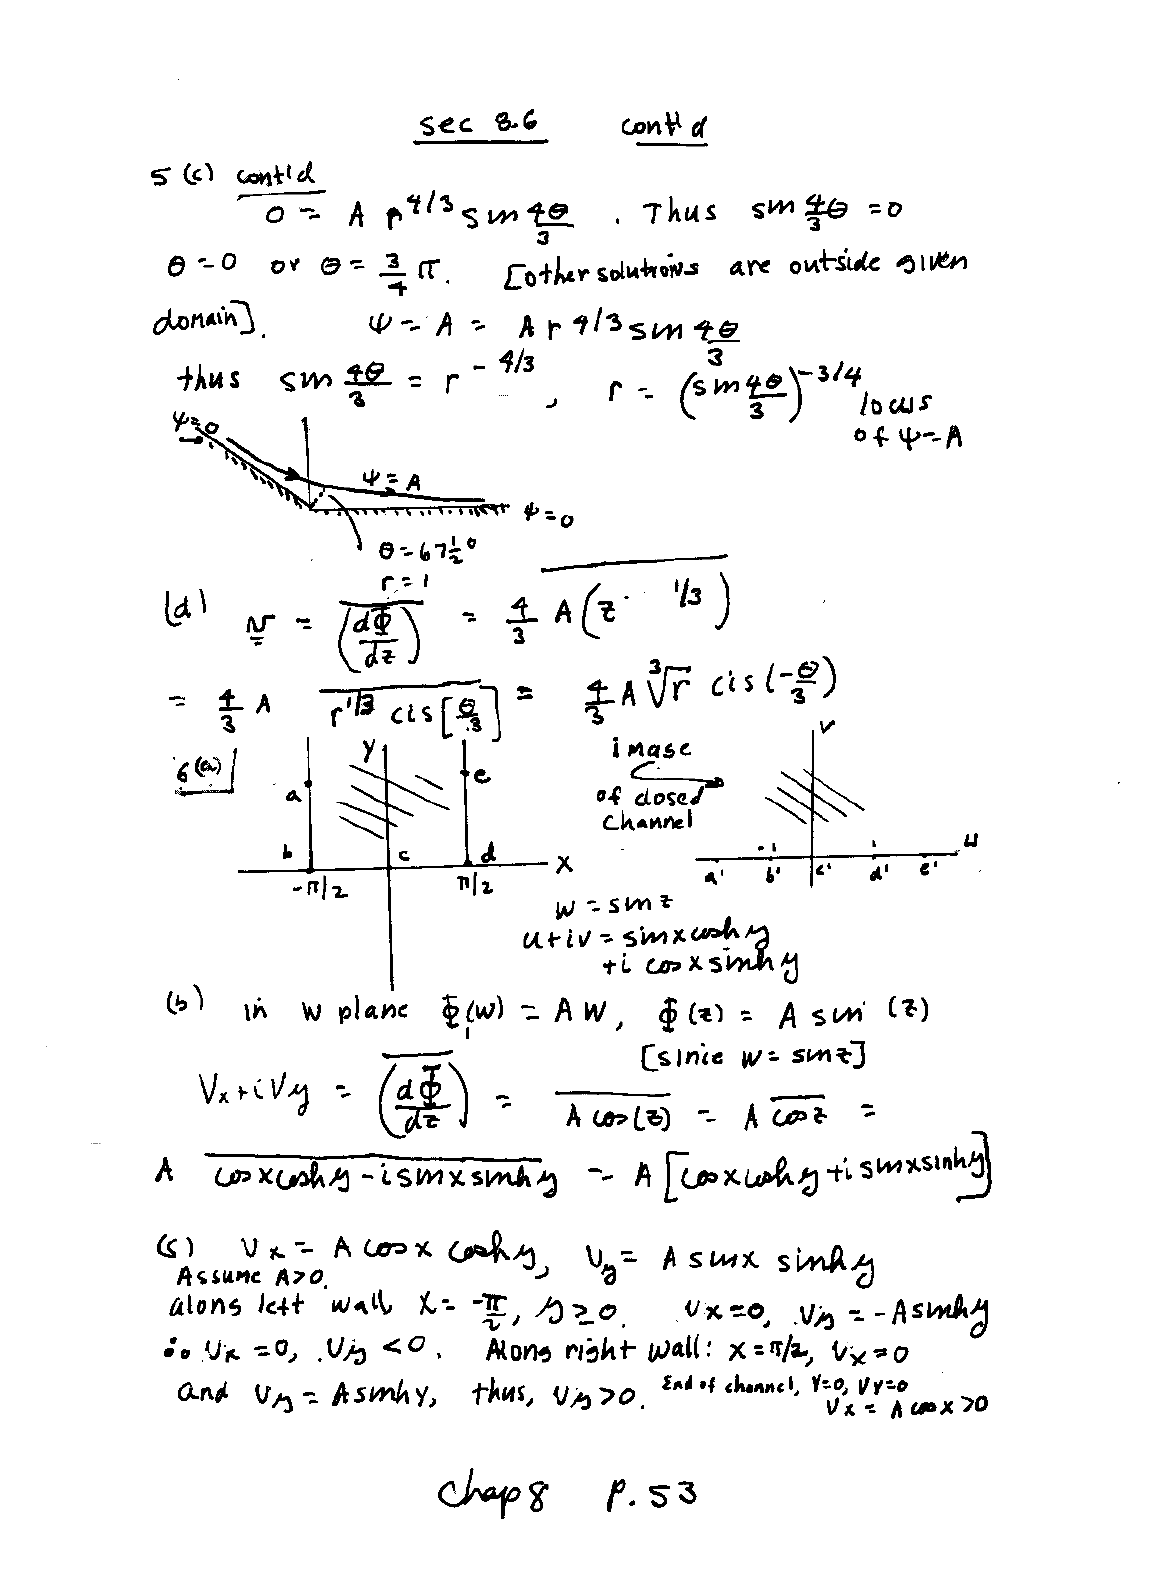 sec 8.6 cont'd
5 (c) cont'd
0 = A r^4/3 sin 4θ/3 . Thus sin 4/3 θ = 0
θ = 0 or θ = 3/4 π. [other solutions are outside given
domain]. ψ = A = A r 4/3 sin 4θ/3
thus sin 4θ/3 = r^-4/3, r = (sin 4θ/3)^-3/4 locus
of ψ = A
ψ=0
ψ = A
ψ=0
θ = 67 1/2°
r = 1
(d) v = \overline{(dΦ/dz)} = 4/3 \overline{A(z^1/3)}
= 4/3 A \overline{r^1/3 cis[θ/3]} = 4/3 A ∛r cis(-θ/3)
6(a)
y
a
e
b
c
d
x
-π/2
π/2
image
of closed
channel
v
u
-1
1
a'
b'
c'
d'
e'
w = sin z
u+iv = sin x cosh y
+i cos x sinh y
(b) in w plane Φ₁(w) = A w, Φ(z) = A sin (z)
[since w = sin z]
Vx+iVy = \overline{(dΦ/dz)} = \overline{A cos(z)} = A \overline{cos z} =
A \overline{cos x cosh y - i sin x sinh y} = A [cos x cosh y + i sin x sinh y]
(c) Vx = A cos x cosh y, Vy = A sin x sinh y
Assume A>0.
along left wall x = -π/2, y ≥ 0. Vx = 0, Vy = -A sinh y
∴ Vx = 0, Vy < 0. Along right wall: x = π/2, Vx = 0
and Vy = A sinh y, thus, Vy > 0. End of channel, Y=0, VY=0
Vx = A cos x > 0
Chap 8 P. 53